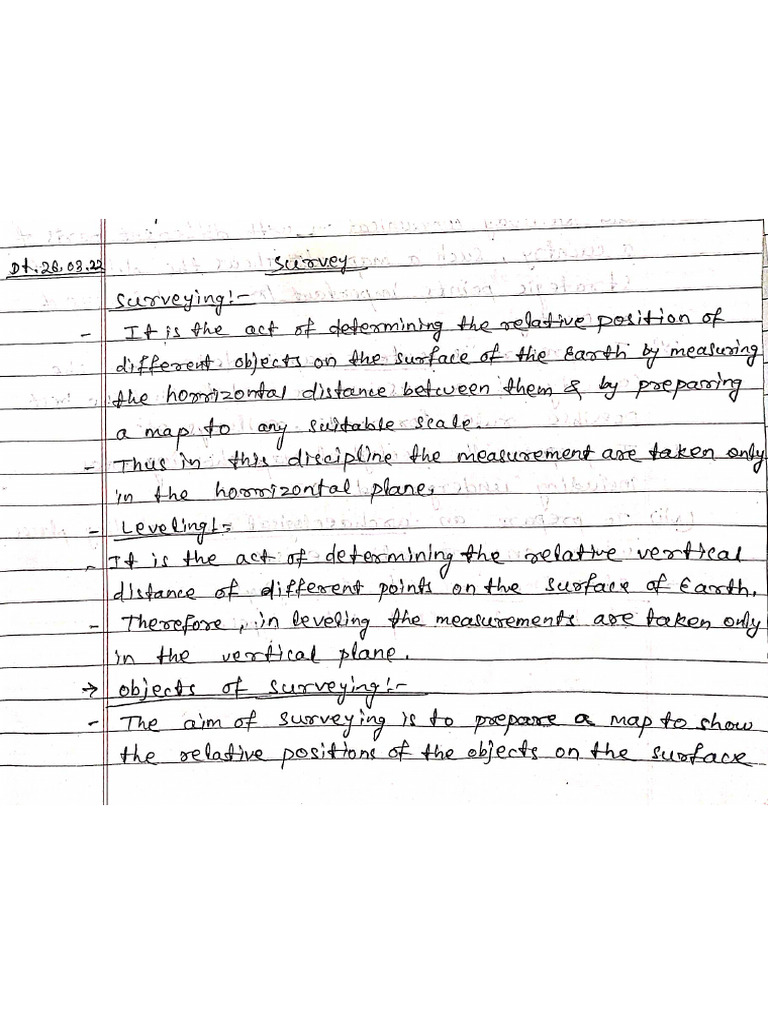 Dt. 26.03.22
Survey
Surveying:-
- It is the act of determining the relative position of
different objects on the surface of the Earth by measuring
the horrizontal distance between them & by preparing
a map to any suitable scale.
- Thus in this discipline the measurement are taken only
in the horrizontal plane.
- Leveling:-
- It is the act of determining the relative vertical
distance of different points on the surface of Earth.
- Therefore, in leveling the measurements are taken only
in the vertical plane.
→ Objects of surveying:-
- The aim of surveying is to prepare a map to show
the relative positions of the objects on the surface